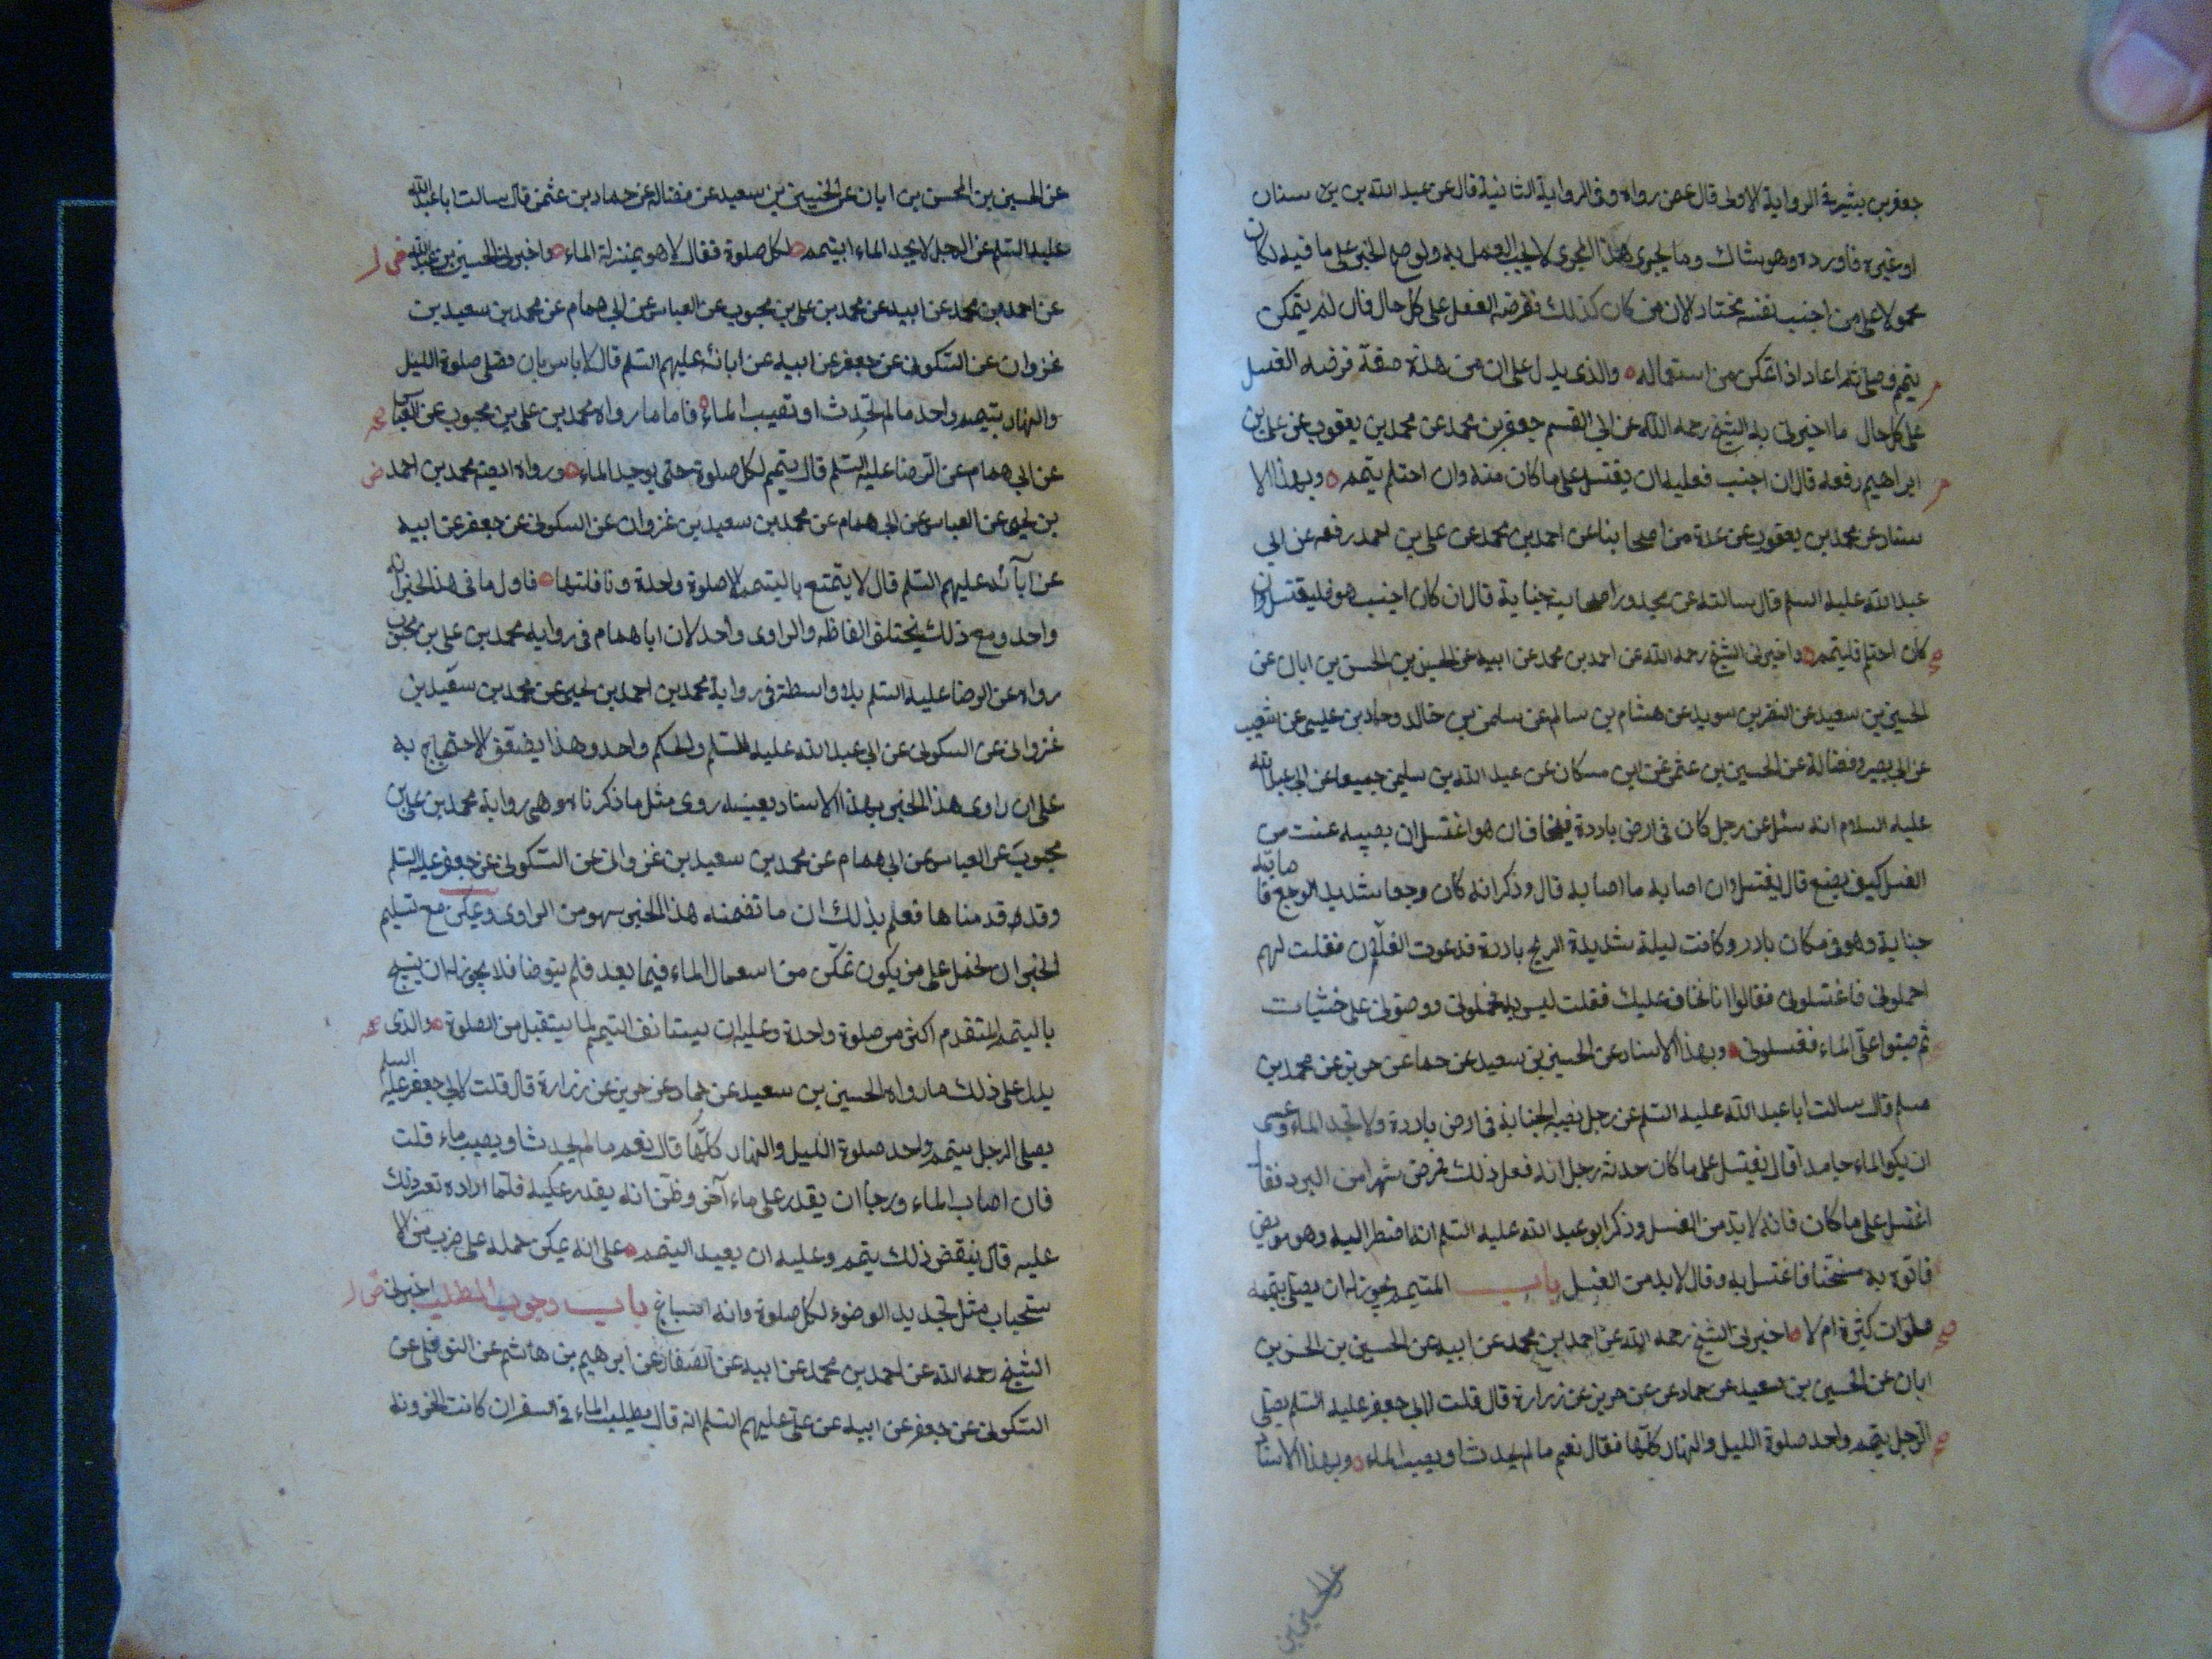 جعفر بن بشير في الرواية الاولى قال عمن رواه وفي الرواية الثانية قال عن عبد الله بن سنان
او غيره فاورده وهو شاك وما يجرى هذا المجرى لا يجب العمل به ولو صح الخبر على ما فيه لكان
محمولا على من اجنب نفسه مختارا لان من كان كذلك ففرضه الغسل على كل حال فان لم يتمكن
يتيمم وصلى ثم اعاد اذا تمكن من استعماله والذى يدل على ان من هذه صفته فرضه الغسل
على كل حال ما اخبرنى به الشيخ رحمه الله عن ابي القسم جعفر بن محمد عن محمد بن يعقوب عن على بن
ابراهيم رفعه قال ان اجنب فعليه ان يغتسل على ما كان منه وان احتلم يتيمم وبهذا الا
سناد عن محمد بن يعقوب عن عدة من اصحابنا عن احمد بن محمد عن على بن احمد رفعه عن ابي
عبد الله عليه السلم قال سالته عن مجدور اصابته جنابة قال ان كان اجنب هو فليغتسل وان
كان احتلم فليتيمم واخبرنى الشيخ رحمه الله عن احمد بن محمد عن ابيه عن الحسين بن الحسن بن ابان عن
الحسين بن سعيد عن النضر بن سويد عن هشام بن سالم عن سليمن بن خالد وحماد بن عيسى عن شعيب
عن ابي بصير وفضالة عن الحسين بن عثمن عن ابن مسكان عن عبد الله بن سليمن جميعا عن ابي عبد الله
عليه السلام انه سئل عن رجل كان في ارض باردة فيخاف ان هو اغتسل ان يصيبه عنت من
الغسل كيف يصنع قال يغتسل وان اصابه ما اصابه قال وذكر انه كان وجعا شديد الوجع فاصابته
جنابة وهو في مكان بارد وكانت ليلة شديدة الريح باردة فدعوت الغلمة فقلت لهم
احملونى فاغسلونى فقالوا انا نخاف عليك فقلت ليس بد فحملونى ووضعونى على خشبات
ثم صبوا على الماء فغسلونى وبهذا الاسناد عن الحسين بن سعيد عن حماد عن حريز عن محمد بن
مسلم قال سالت ابا عبد الله عليه السلم عن رجل تصيبه الجنابة في ارض باردة ولا تجد الماء وعسى
ان يكون الماء جامدا قال يغتسل على ما كان حدثه رجل انه فعل ذلك فمرض شهرا من البرد فقال
اغتسل على ما كان فانه لا بد من الغسل وذكر ابو عبد الله عليه السلم انه اضطر اليه وهو مريض
فاتوه به مسخنا فاغتسل به وقال لا بد من الغسل باب المتيمم يجوز له ان يصلى بتيممه
صلوات كثيرة ام لا اخبرنى الشيخ رحمه الله عن احمد بن محمد عن ابيه عن الحسين بن الحسن بن
ابان عن الحسين بن سعيد عن حماد عن حريز عن زرارة قال قلت لابي جعفر عليه السلم يصلى
الرجل بتيمم واحد صلوة الليل والنهار كلها فقال نعم ما لم يحدث او يصيب الماء وبهذا الاسناد
عن الحسين بن
عن الحسين بن الحسن بن ابان عن الحسين بن سعيد عن فضالة عن حماد بن عثمن قال سالت ابا عبد الله
عليه السلم عن الرجل لا يجد الماء ايتيمم لكل صلوة فقال لا هو بمنزلة الماء واخبرنى الحسين بن عبيد الله
عن احمد بن محمد عن ابيه عن محمد بن على بن محبوب عن العباس عن ابي همام عن محمد بن سعيد بن
غزوان عن السكونى عن جعفر عن ابيه عن ابائه عليهم السلم قال لا باس بان تصلى صلوة الليل
والنهار بتيمم واحد ما لم تحدث او تصيب الماء فاما ما رواه محمد بن على بن محبوب عن العباس
عن ابي همام عن الرضا عليه السلم قال يتيمم لكل صلوة حتى يوجد الماء ورواه ايضا محمد بن احمد
بن يحيى عن العباس عن ابي همام عن محمد بن سعيد بن غزوان عن السكونى عن جعفر عن ابيه
عن آبائه عليهم السلم قال لا يتمتع بالتيمم الا صلوة واحدة ونافلتها فاول ما في هذا الخبر انه
واحد ومع ذلك يختلف الفاظه والراوى واحد لان ابا همام في رواية محمد بن على بن محبوب
رواه عن الرضا عليه السلم بلا واسطة وفي رواية محمد بن احمد بن يحيى عن محمد بن سعيد بن
غزوان عن السكونى عن ابي عبد الله عليه السلم والحكم واحد وهذا يضعف الاحتجاج به
على ان راوى هذا الخبر بهذا الاسناد بعينه روى مثل ما ذكرناه وهى رواية محمد بن على بن
محبوب عن العباس عن ابي همام عن محمد بن سعيد بن غزوان عن السكونى عن جعفر عليه السلم
وقد قدمناها فعلم بذلك ان ما تضمنه هذا الخبر سهو من الراوى ويمكن مع تسليم
الخبر ان نحمل على من يكون تمكن من استعمال الماء فيما بعد فلم يتوضا فلا يجوز له ان يستبيح
بالتيمم المتقدم اكثر من صلوة واحدة وعليه ان يستانف التيمم لما يستقبل من الصلوة والذى
يدل على ذلك ما رواه الحسين بن سعيد عن حماد عن حريز عن زرارة قال قلت لابي جعفر عليه السلم
يصلى الرجل بتيمم واحد صلوة الليل والنهار كلها قال نعم ما لم يحدث او يصيب ماء قلت
فان اصاب الماء ورجا ان يقدر على ماء آخر وظن انه يقدر عليه فلما اراده تعسر ذلك
عليه قال ينقض ذلك تيممه وعليه ان يعيد التيمم على انه يمكن حمله على ضرب من الا
ستحباب مثل تجديد الوضوء لكل صلوة وانه اسباغ باب وجوب الطلب اخبرنى
الشيخ رحمه الله عن احمد بن محمد عن ابيه عن الصفار عن ابرهيم بن هاشم عن النوفلى عن
السكونى عن جعفر عن ابيه عن على عليهم السلم انه قال يطلب الماء في السفر ان كانت الحزونة